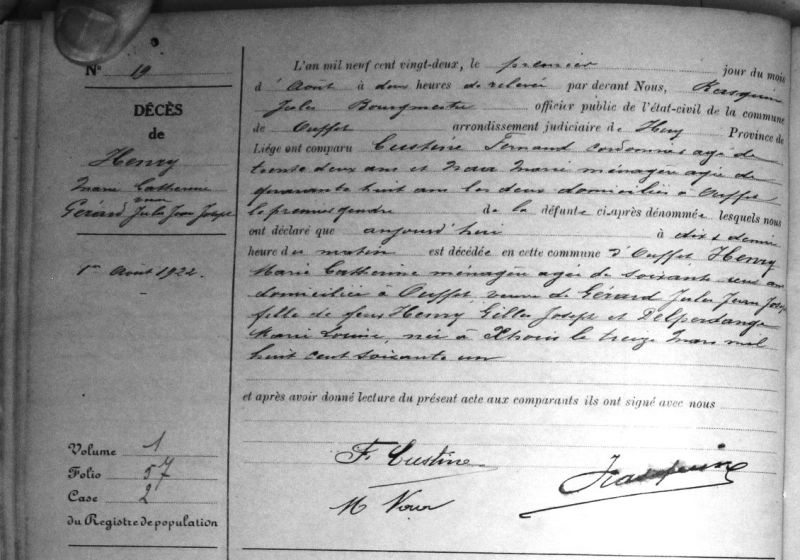 N° 19
DÉCÈS
de
Henry
Marie Catherine
veuve
Gérard Jules Jean Joseph
1er Août 1922.
Volume 1
Folio 57
Case 2
du Registre de population
L'an mil neuf cent vingt-deux, le premier jour du mois
d'Août à deux heures de relevée par devant Nous,
Jules Bourgmestre officier public de l'état-civil de la commune
de Ouffet arrondissement judiciaire de Huy Province de
Liége ont comparu Custine Fernand cordonnier agé de
trente deux ans et Marie ménagère agée de
quarante huit ans les deux domiciliés à Ouffet
le premier gendre de la défunte ci-après dénommée lesquels nous
ont déclaré que aujourd'hui à dix demie
heure du matin est décédée en cette commune d'Ouffet Henry
Marie Catherine ménagère agée de soixante ans
domiciliée à Ouffet veuve de Gérard Jules Jean Joseph
fille de feus Henry Gilles Joseph et Delperdange
Marie Louise, née à Xhoris le treize Mars mil
huit cent soixante un
et après avoir donné lecture du présent acte aux comparants ils ont signé avec nous
F Custine
M